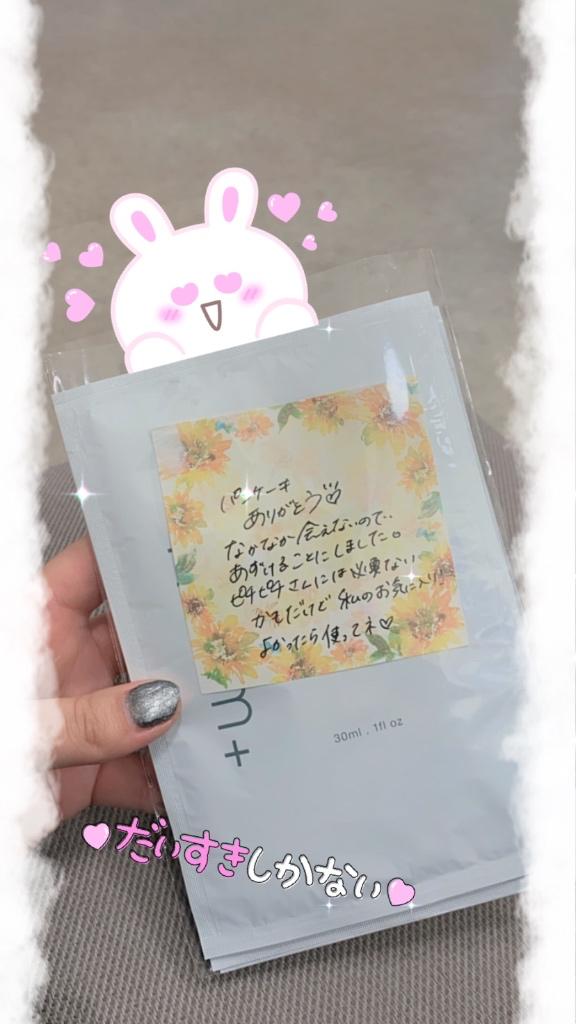 パンケーキ
ありがとう♡
なかなか会えないので、
あずけることにしました。
ピチピチさんには必要ない
かもだけど 私のお気に入り!
よかったら使ってネ♡
n+
30ml . 1fl oz
だいすきしかない